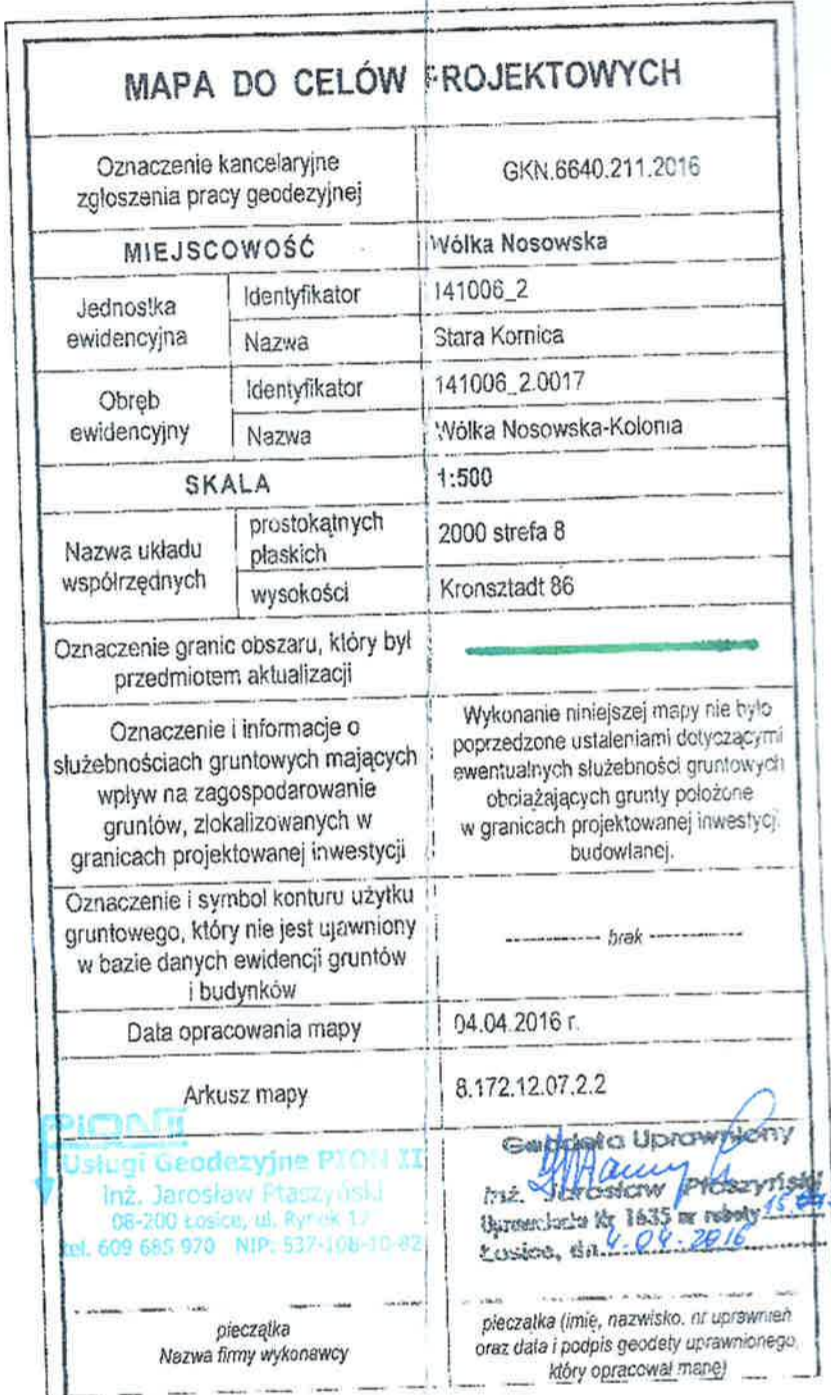 MAPA DO CELÓW PROJEKTOWYCH
Oznaczenie kancelaryjne
zgłoszenia pracy geodezyjnej
GKN.6640.211.2016
MIEJSCOWOŚĆ
Wólka Nosowska
Jednostka
ewidencyjna
Identyfikator
141006_2
Nazwa
Stara Kornica
Obręb
ewidencyjny
Identyfikator
141006_2.0017
Nazwa
Wólka Nosowska-Kolonia
SKALA
1:500
Nazwa układu
współrzędnych
prostokątnych
płaskich
2000 strefa 8
wysokości
Kronsztadt 86
Oznaczenie granic obszaru, który był
przedmiotem aktualizacji
Oznaczenie i informacje o
służebnościach gruntowych mających
wpływ na zagospodarowanie
gruntów, zlokalizowanych w
granicach projektowanej inwestycji
Wykonanie niniejszej mapy nie było
poprzedzone ustaleniami dotyczącymi
ewentualnych służebności gruntowych
obciążających grunty położone
w granicach projektowanej inwestycji
budowlanej.
Oznaczenie i symbol konturu użytku
gruntowego, który nie jest ujawniony
w bazie danych ewidencji gruntów
i budynków
------------ brak ------------
Data opracowania mapy
04.04.2016 r.
Arkusz mapy
8.172.12.07.2.2
PION II
Usługi Geodezyjne PION II
inż. Jarosław Ptaszyński
08-200 Łosice, ul. Rynek 17
tel. 609 685 970 NIP: 537-108-10-82
pieczątka
Nazwa firmy wykonawcy
Geodeta Uprawniony
inż. Jarosław Ptaszyński
Uprawnienia Nr 1635 nr roboty 15
Łosice, dn. 4.04.2016
pieczątka (imię, nazwisko, nr uprawnień
oraz data i podpis geodety uprawnionego,
który opracował mapę)